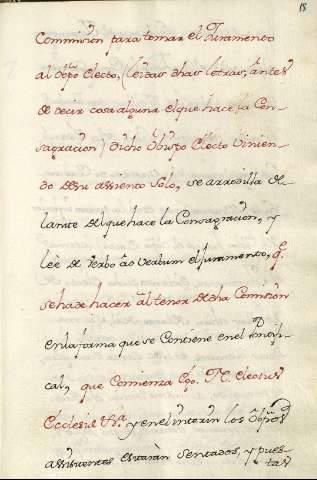 15
Commission para tomar el Juramento
al Obpo electo, (leydas dhas letras, antes
de decir cosa alguna el que hace la Con-
sagracion) Dicho Obispo Electo Vinien-
do de su assiento Solo, se arrodilla de-
lante del que hace la Consagracion, y
leè de Verbo ad Verbum el Juramento, q.e
se ha de hacer âl tenor de dha Comision
en la forma que se Contiene en el Pontifi-
cal, que Comienza Ego N. electus
Ecclesiæ N.a y en el interin los Obpos
assistentes estaràn sentados, y pues-
tas